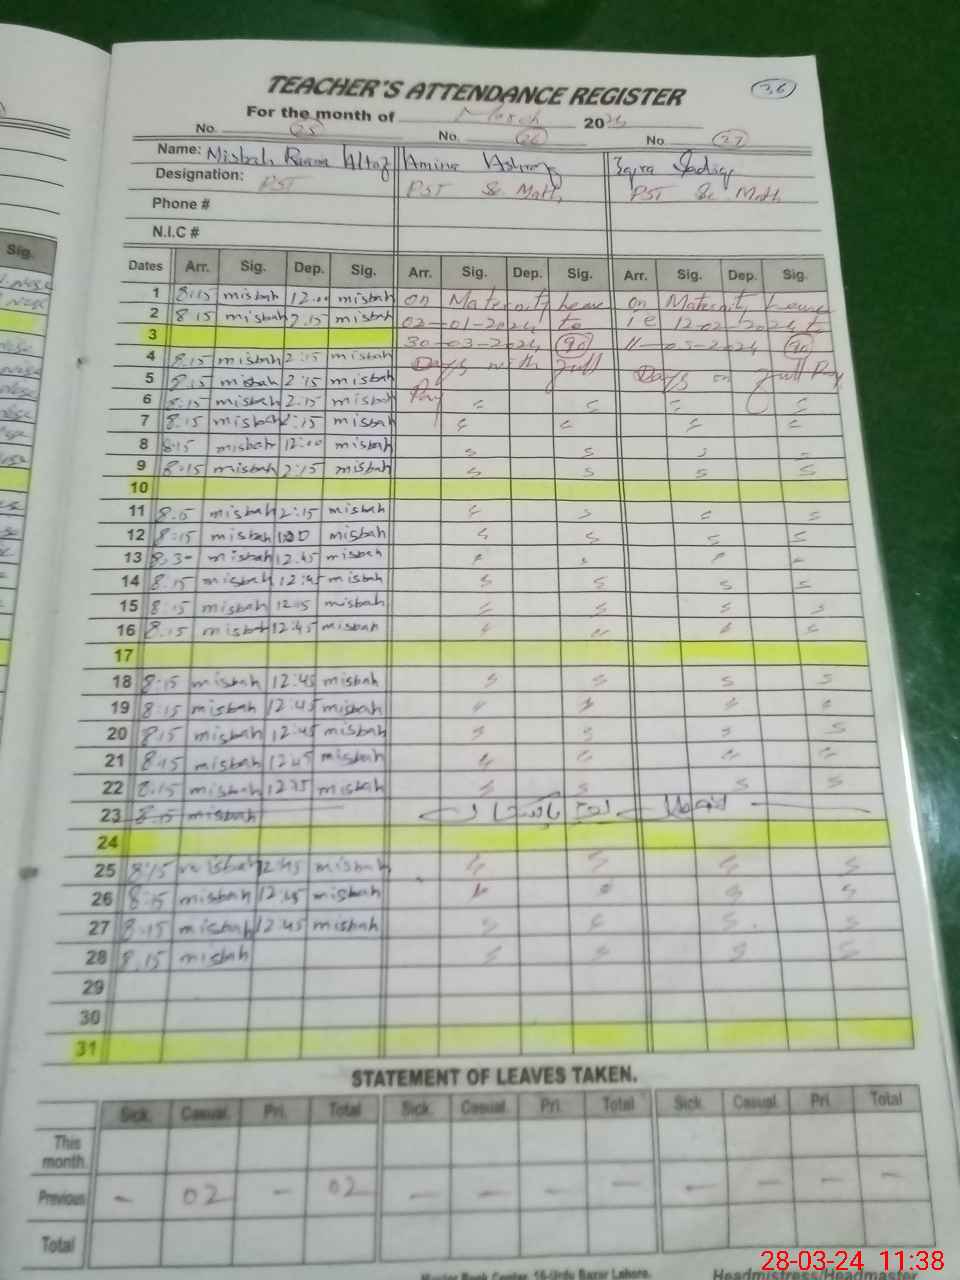 TEACHER'S ATTENDANCE REGISTER
36
For the month of March 2024
No. 25 No. 26 No. 27
Name: Misbah Altaf Amina Ashraf Iqra Sadiq
Designation: PST PST Sc. Math PST Sc. Math
Phone #
N.I.C #
Sig.
Dates Arr. Sig. Dep. Sig. Arr. Sig. Dep. Sig. Arr. Sig. Dep. Sig.
1 8:15 misbah 12:00 misbah on Maternity Leave on Maternity Leave
2 8:15 misbah 2:15 misbah 02-01-2024 to i.e 12-02-2024 to
3 30-03-2024 90 11-05-2024 90
4 8:15 misbah 2:15 misbah Days with full Days on full Pay
5 8:15 misbah 2:15 misbah Pay
6 8:15 misbah 2:15 misbah
7 8:15 misbah 2:15 misbah
8 8:15 misbah 12:00 misbah
9 8:15 misbah 2:15 misbah
10
11 8:15 misbah 2:15 misbah
12 8:15 misbah misbah
13 8:30 misbah 12:45 misbah
14 8:15 misbah 12:45 misbah
15 8:15 misbah 12:15 misbah
16 8:15 misbah 12:45 misbah
17
18 8:15 misbah 12:45 misbah
19 8:15 misbah 12:45 misbah
20 8:15 misbah 12:45 misbah
21 8:15 misbah 12:45 misbah
22 8:15 misbah misbah
23 8:15 misbah
24
25 8:15 misbah 12:45 misbah
26 8:15 misbah 12:45 misbah
27 8:15 misbah 12:45 misbah
28 8:15 misbah
29
30
31
STATEMENT OF LEAVES TAKEN.
Sick. Casual. Pri. Total Sick. Casual. Pri. Total Sick. Casual. Pri. Total
This month.
Previous - 02 - 02 - - - - - - - -
Total
Book Center, 16-Urdu Bazar Lahore. Headmistress/Headmaster
28-03-24 11:38